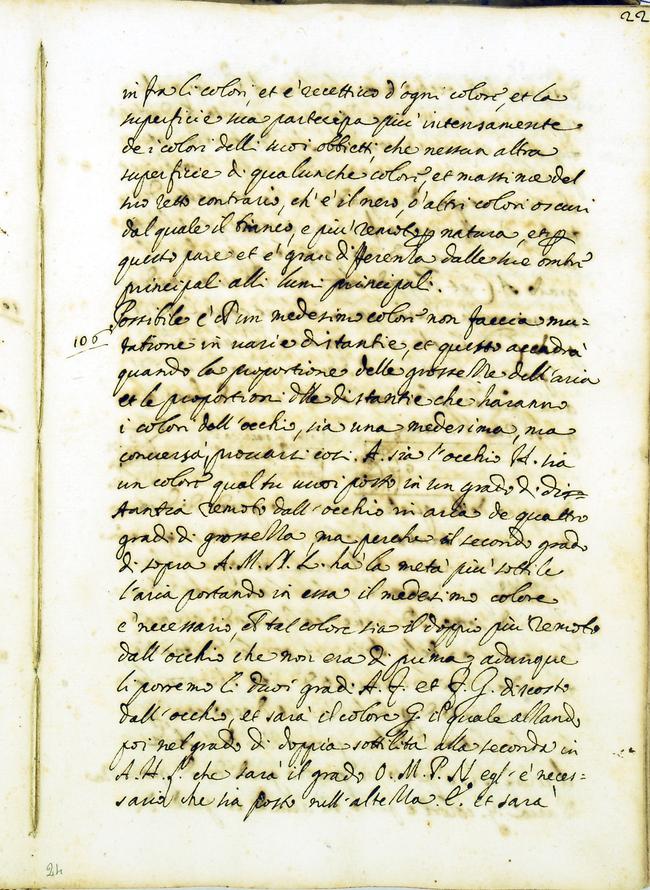 22
in fra li colori, et è recettivo d'ogni colore, et la
superficie sua partecipa piu' intensamente
de i colori delli suoi obbietti, che nessun altra
superficie di qualunche colore, et massime del
suo retto contrario, ch'è il nero, o' altri colori oscuri
dal quale il bianco, e piu' remoto p natura, et p
questo pare et è gran differenza dalle sue ombre
principali alli lumi principali.
106 Possibile è ch'un medesimo colore non faccia mu=
tatione in varie distantie, et questo accadrà
quando la proportione delle grossezze dell'aria
et le proportion delle distantie che haranno
i colori dall'occhio, sia una medesima, ma
conversa, provasi cosi. A. sia l'occhio H. sia
un colore qual tu vuoi posto in un grado di dis=
tantia remoto dall'occhio in aria de quattro
gradi di grossezza, ma perche il secondo grado
di sopra A. M. N. L. ha la metà piu sottile
l'aria portando in essa il medesimo colore
è necessario, ch'tal colore sia il doppio piu remoto
dall'occhio che non era di prima, adunque
li porremo li duoi gradi A. F. et F. G. discosto
dall'occhio, et sarà il colore G. il quale alzando
poi nel grado di doppia sottilità alla seconda in
A. H. L. che sarà il grado O. M. P. N egl'è neces=
sario che sia posto nell'altezza E. et sarà
24